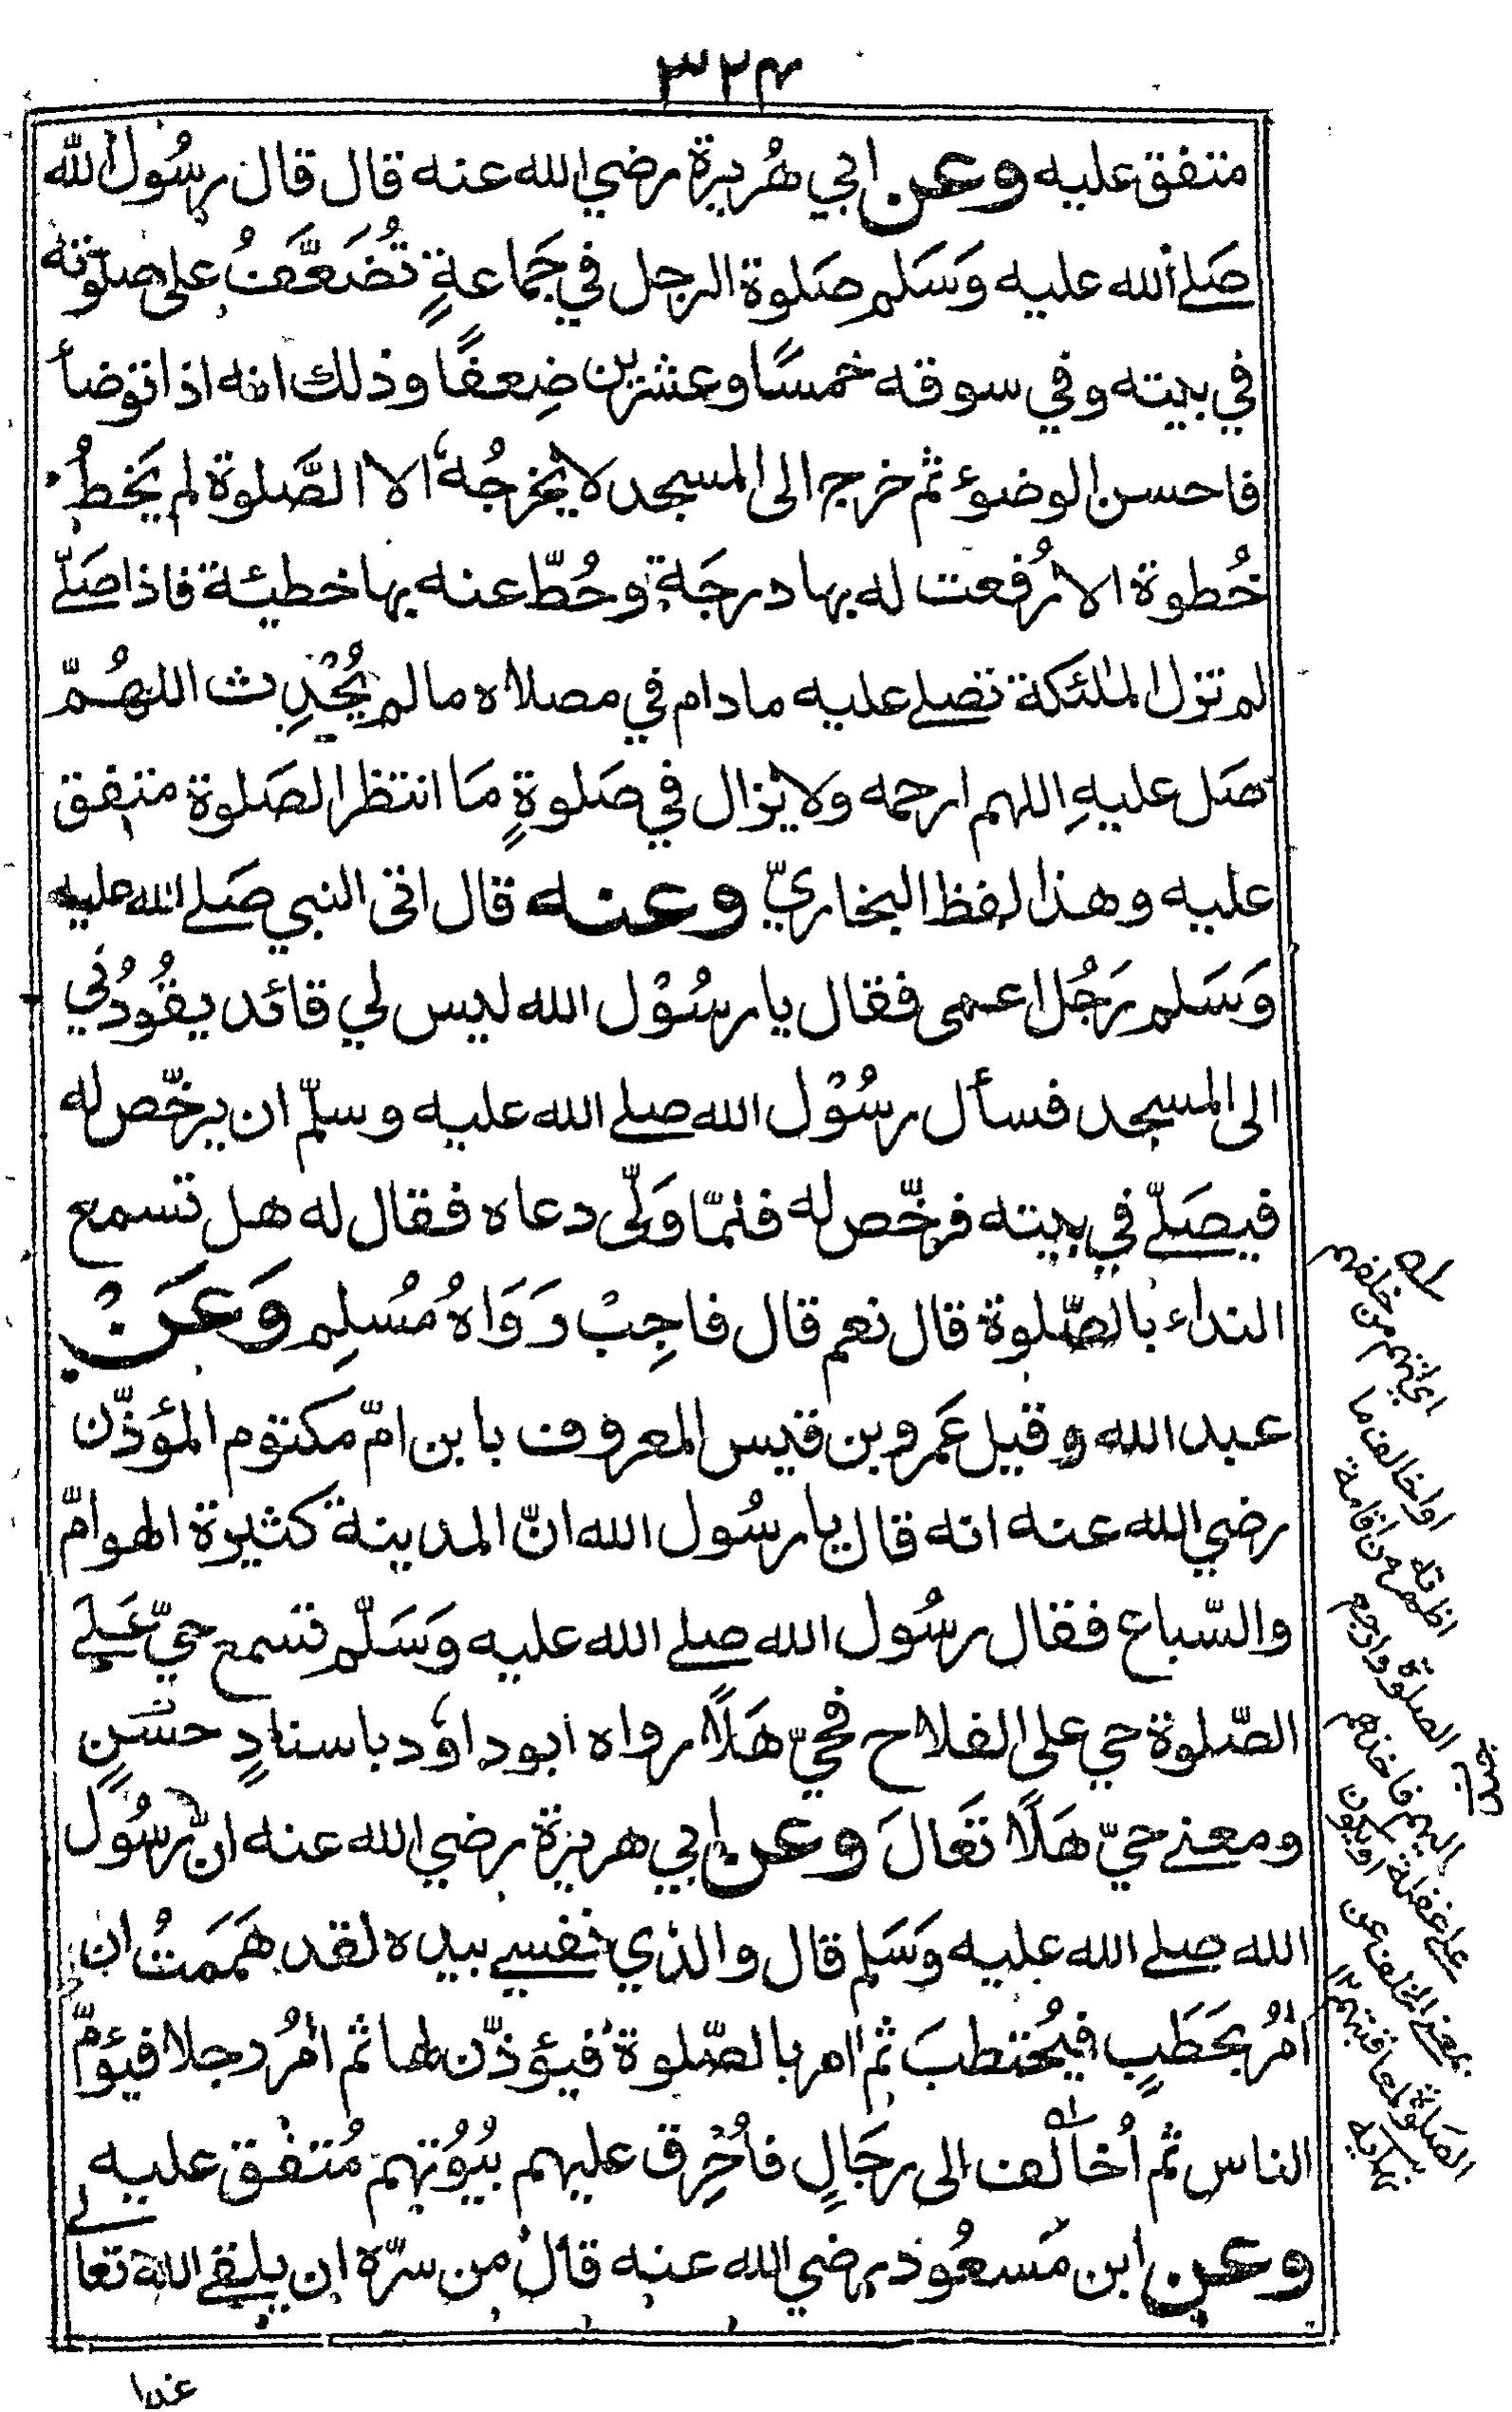 ٣٢٤
متفق عليه وعن ابي هُريرة رضي الله عنه قال قال رسُول الله
صَلے الله عليه وَسَلم صَلوة الرجل في جَماعةٍ تُضَعَّفُ على صلٰوته
في بيته وفي سوقه خمسًا وعشرين ضِعفًا وذلك انه اذا توضأ
فاحسن الوضوءَ ثم خرج الى المسجد لا يخرجُهُ الا الصَّلوة لم يَخطُ
خُطوة الا رُفعت له بها درجَة وحُطّ عنه بها خطيئة فاذا صَلّے
لم تزل الملٰئكة تصلے عليه مادام في مصلاه مالم يُحْدِث اللهُمّ
صَل عليهِ اللهم ارحمه ولا يزال في صَلوةٍ مَا انتظر الصَلوة متفق
عليه وهذا لفظ البخاريّ وعنه قال اتى النبي صَلے الله عليه
وَسَلم رَجُل اعمى فقال يا رسُوْل الله ليس لي قائد يقُودُني
الى المسجد فسأل رسُوْل الله صلے الله عليه وسلّم ان يرخّص له
فيصَلّے في بيته فرخّص له فلمّا وَلّى دعاه فقال له هل تسمع
النداء بالصّلوة قال نعم قال فاجِبْ رَوَاهُ مُسْلِم وَعَنْ
عبد الله وقيل عَمرو بن قيس المعروف بابن امّ مكتوم المؤذّن
رضي الله عنه انه قال يا رسُول الله انّ المدينة كثيرة الهوامّ
والسّباع فقال رسُول الله صلے الله عليه وَسَلّم تسمع حيّ عَلے
الصّلوة حي على الفلاح فحيّ هَلًا رواه ابو داؤد باسنادٍ حسَنٍ
ومعنے حيّ هَلًا تَعَالَ وعن ابي هريرة رضي الله عنه انّ رسُول
الله صلے الله عليه وَسَلم قال والذي نفسے بيده لقد هَمَمتُ ان
اٰمُرَ بحَطَبٍ فيُحتطبَ ثم اٰمر بالصّلوة فيؤذّن لها ثم اٰمُر رجلا فيؤمّ
الناس ثم اُخالف الى رجَالٍ فاُحْرِق عليهم بيُوْتهم مُتفق عليه
وعن ابن مَسعُود رضي الله عنه قالَ من سرّه ان يلقے الله تعالے
اى اٰتيهم من خلفهم
او اخالف ما
اظهرت من اقامة
الصلوة وارجع
اليهم فاخذهم
على غفلة او يكون
بمعنى اتخلف عن
الصلوة لمعاقبتهم ١٢
غدا